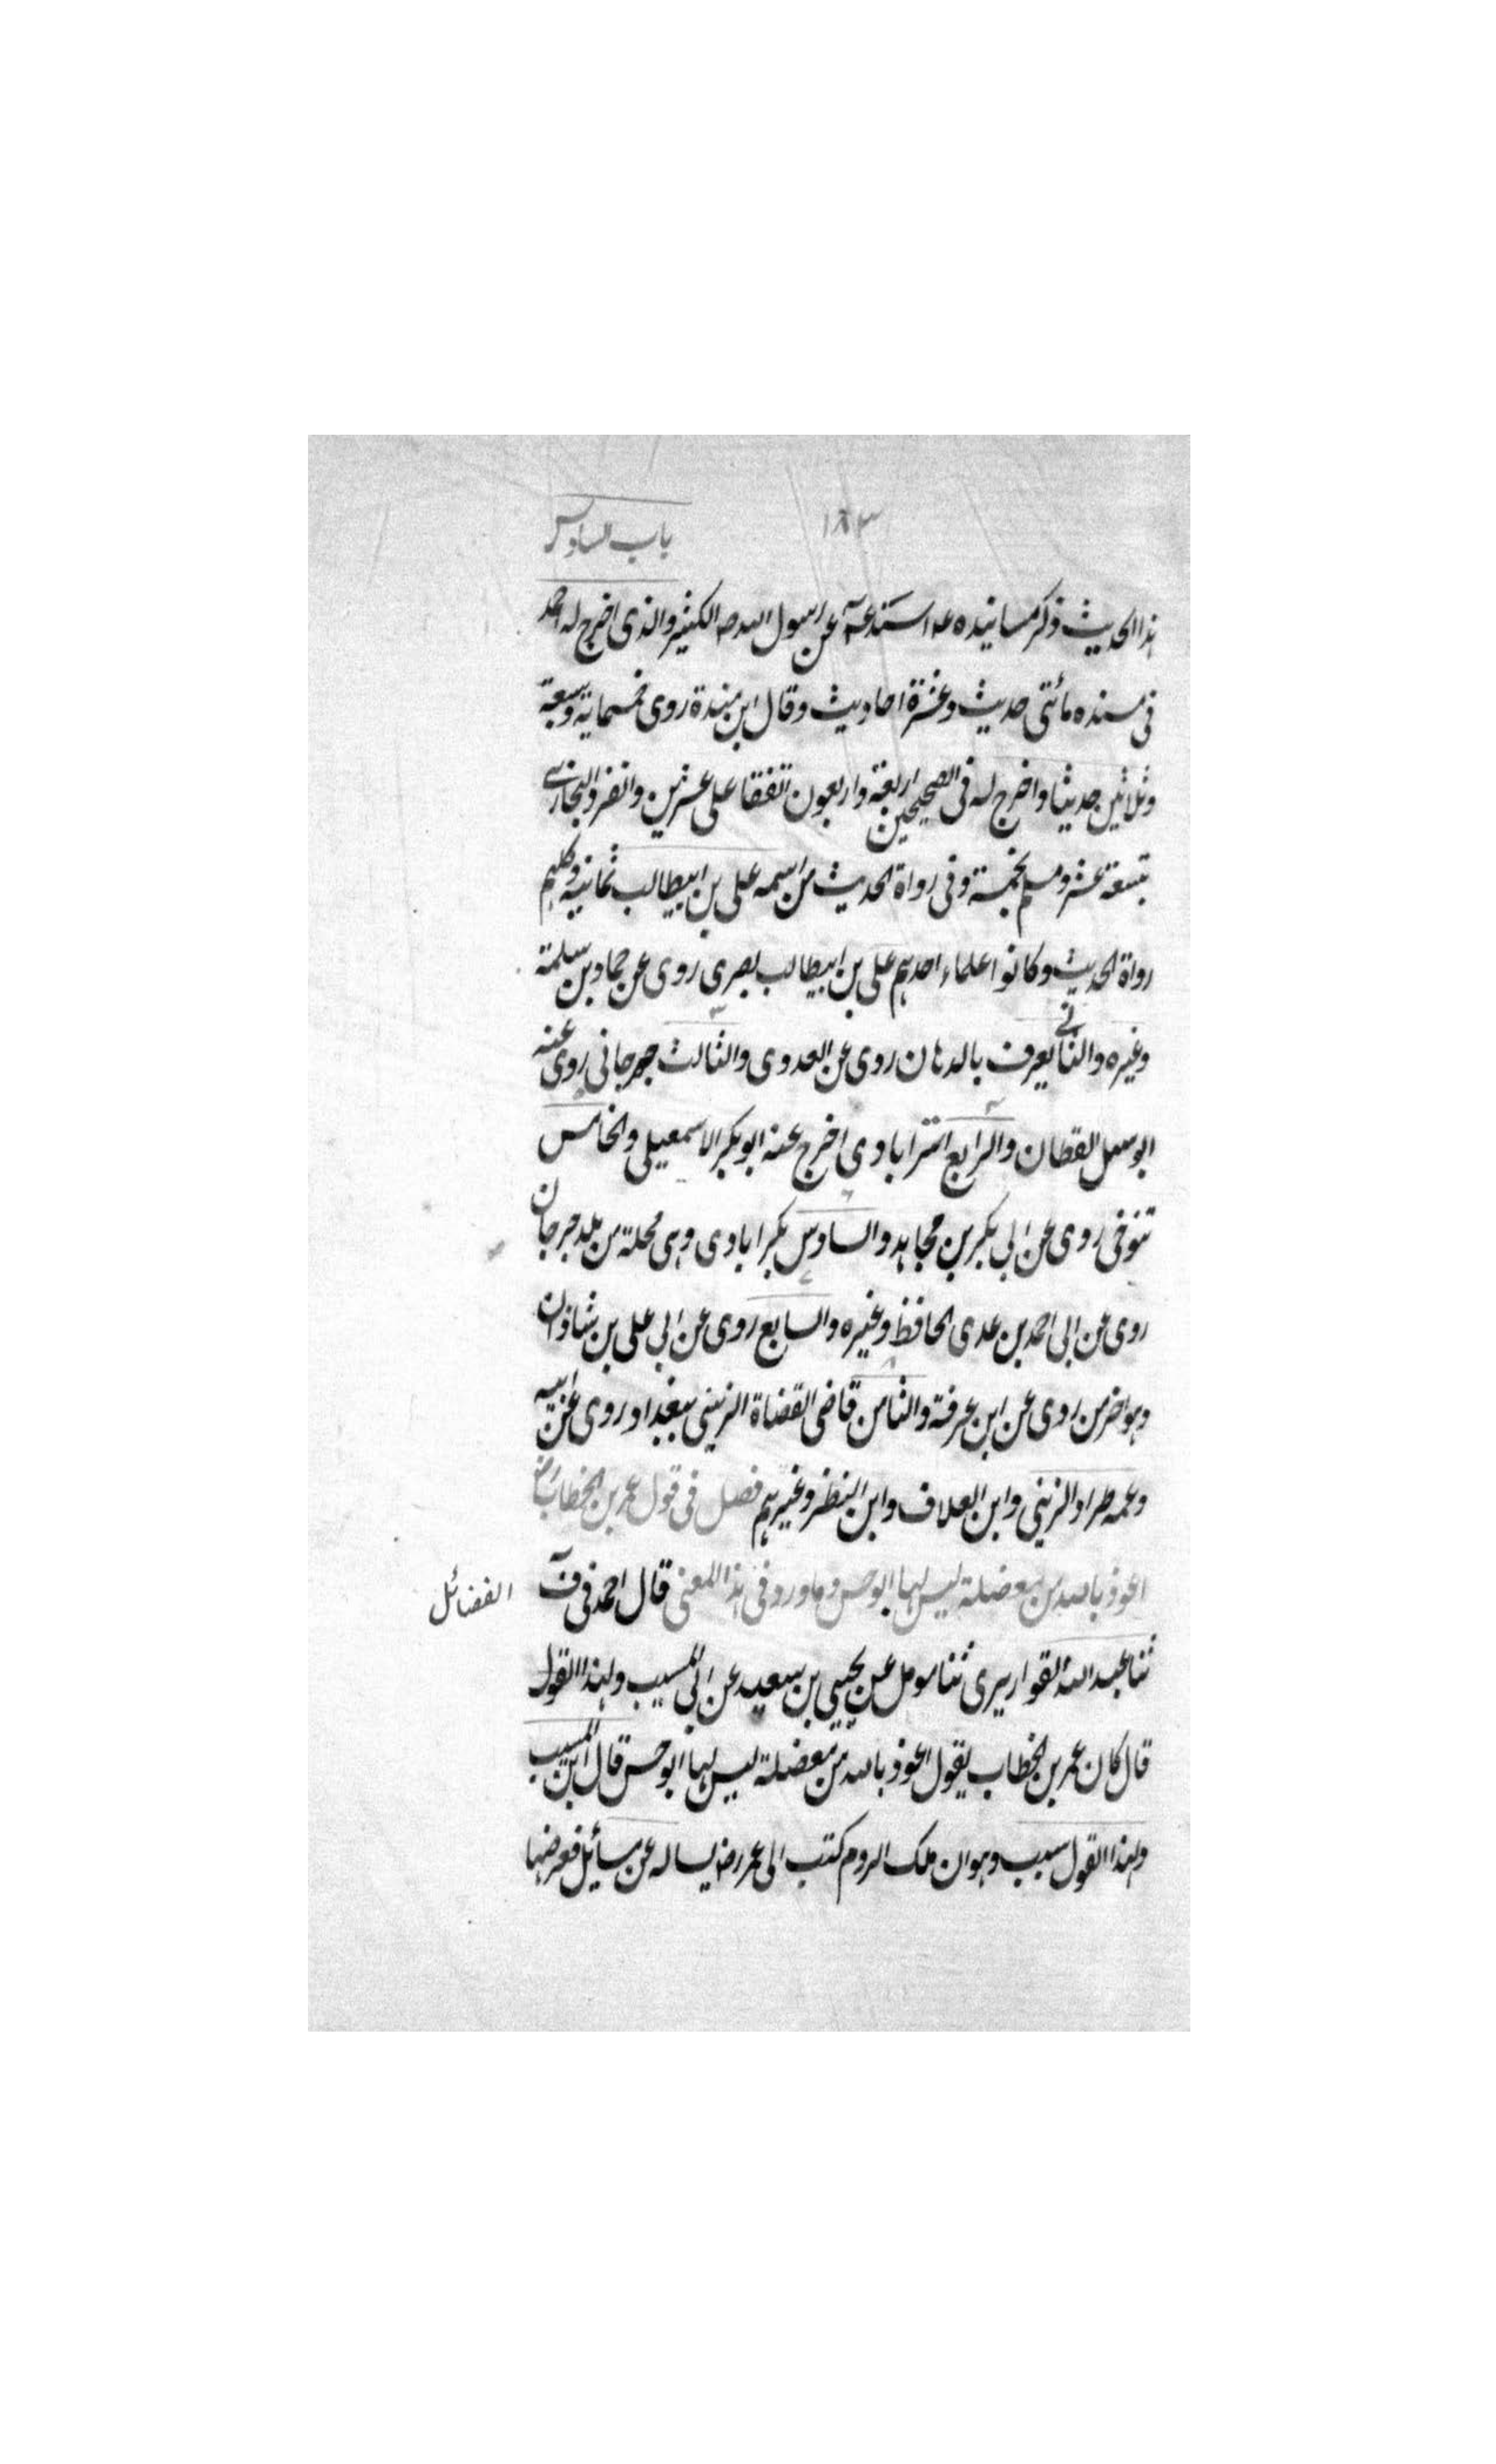 باب السادس
١٨٣
هذا الحديث وذكر مسانيده عم اسند عم عن رسول الله صم الكثير والذى اخرج له احمد
فى مسنده مائتى حديث وعشرة احاديث وقال ابن مندة روى خمسماية وسبعة
وثلاثين حديثا واخرج له فى الصحيحين اربعة واربعون اتفقا على عشرين وانفرد البخارى
بتسعة عشر ومسلم بخمسة وفى رواة الحديث من اسمه على بن ابيطالب ثمانية وكلهم
رواة الحديث وكانوا علماء احدهم على بن ابيطالب بصرى روى عن حماد بن سلمة
وغيره والثانى يعرف بالدهان روى عن العدوى والثالث جرجانى روى عنه
ابو سهل القطان والرابع استرابادى اخرج عنه ابو بكر الاسمعيلى والخامس
تنوخى روى عن ابى بكر بن مجاهد والسادس بكرابادى وهى محلة من بلد جرجان
روى عن ابى احمد بن عدى الحافظ وغيره والسابع روى عن ابى على بن شاذان
وهو اخر من روى عن ابن عرفة والثامن قاضى القضاة الزينبى ببغداد روى عن ابيه
وعمه طراد الزينبى وابن العلاف وابن النظر وغيرهم فصل فى قول عمر بن الخطاب رض
اعوذ بالله من معضلة ليس لها ابو حسن وما ورد فى هذا المعنى قال احمد فى ف
الفضائل
ثنا عبد الله القواريرى ثنا مومل عن يحيى بن سعيد عن ابى المسيب ولهذا القول
قال كان عمر بن الخطاب يقول اعوذ بالله من معضلة ليس لها ابو حسن قال ابن المسيب
ولهذا القول سبب وهو ان ملك الروم كتب الى عمر رض يساله عن مسائل فعرضها